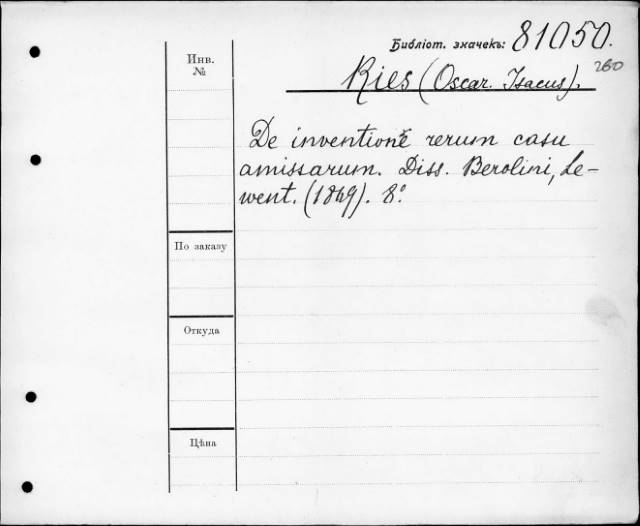 Библіот. значекъ: 81050.
260
Инв.
№
Ries (Oscar. Isacus).
De inventione rerum casu
amissarum. Diss. Berolini, Le-
went. (1869). 8º
По заказу
Откуда
Цѣна